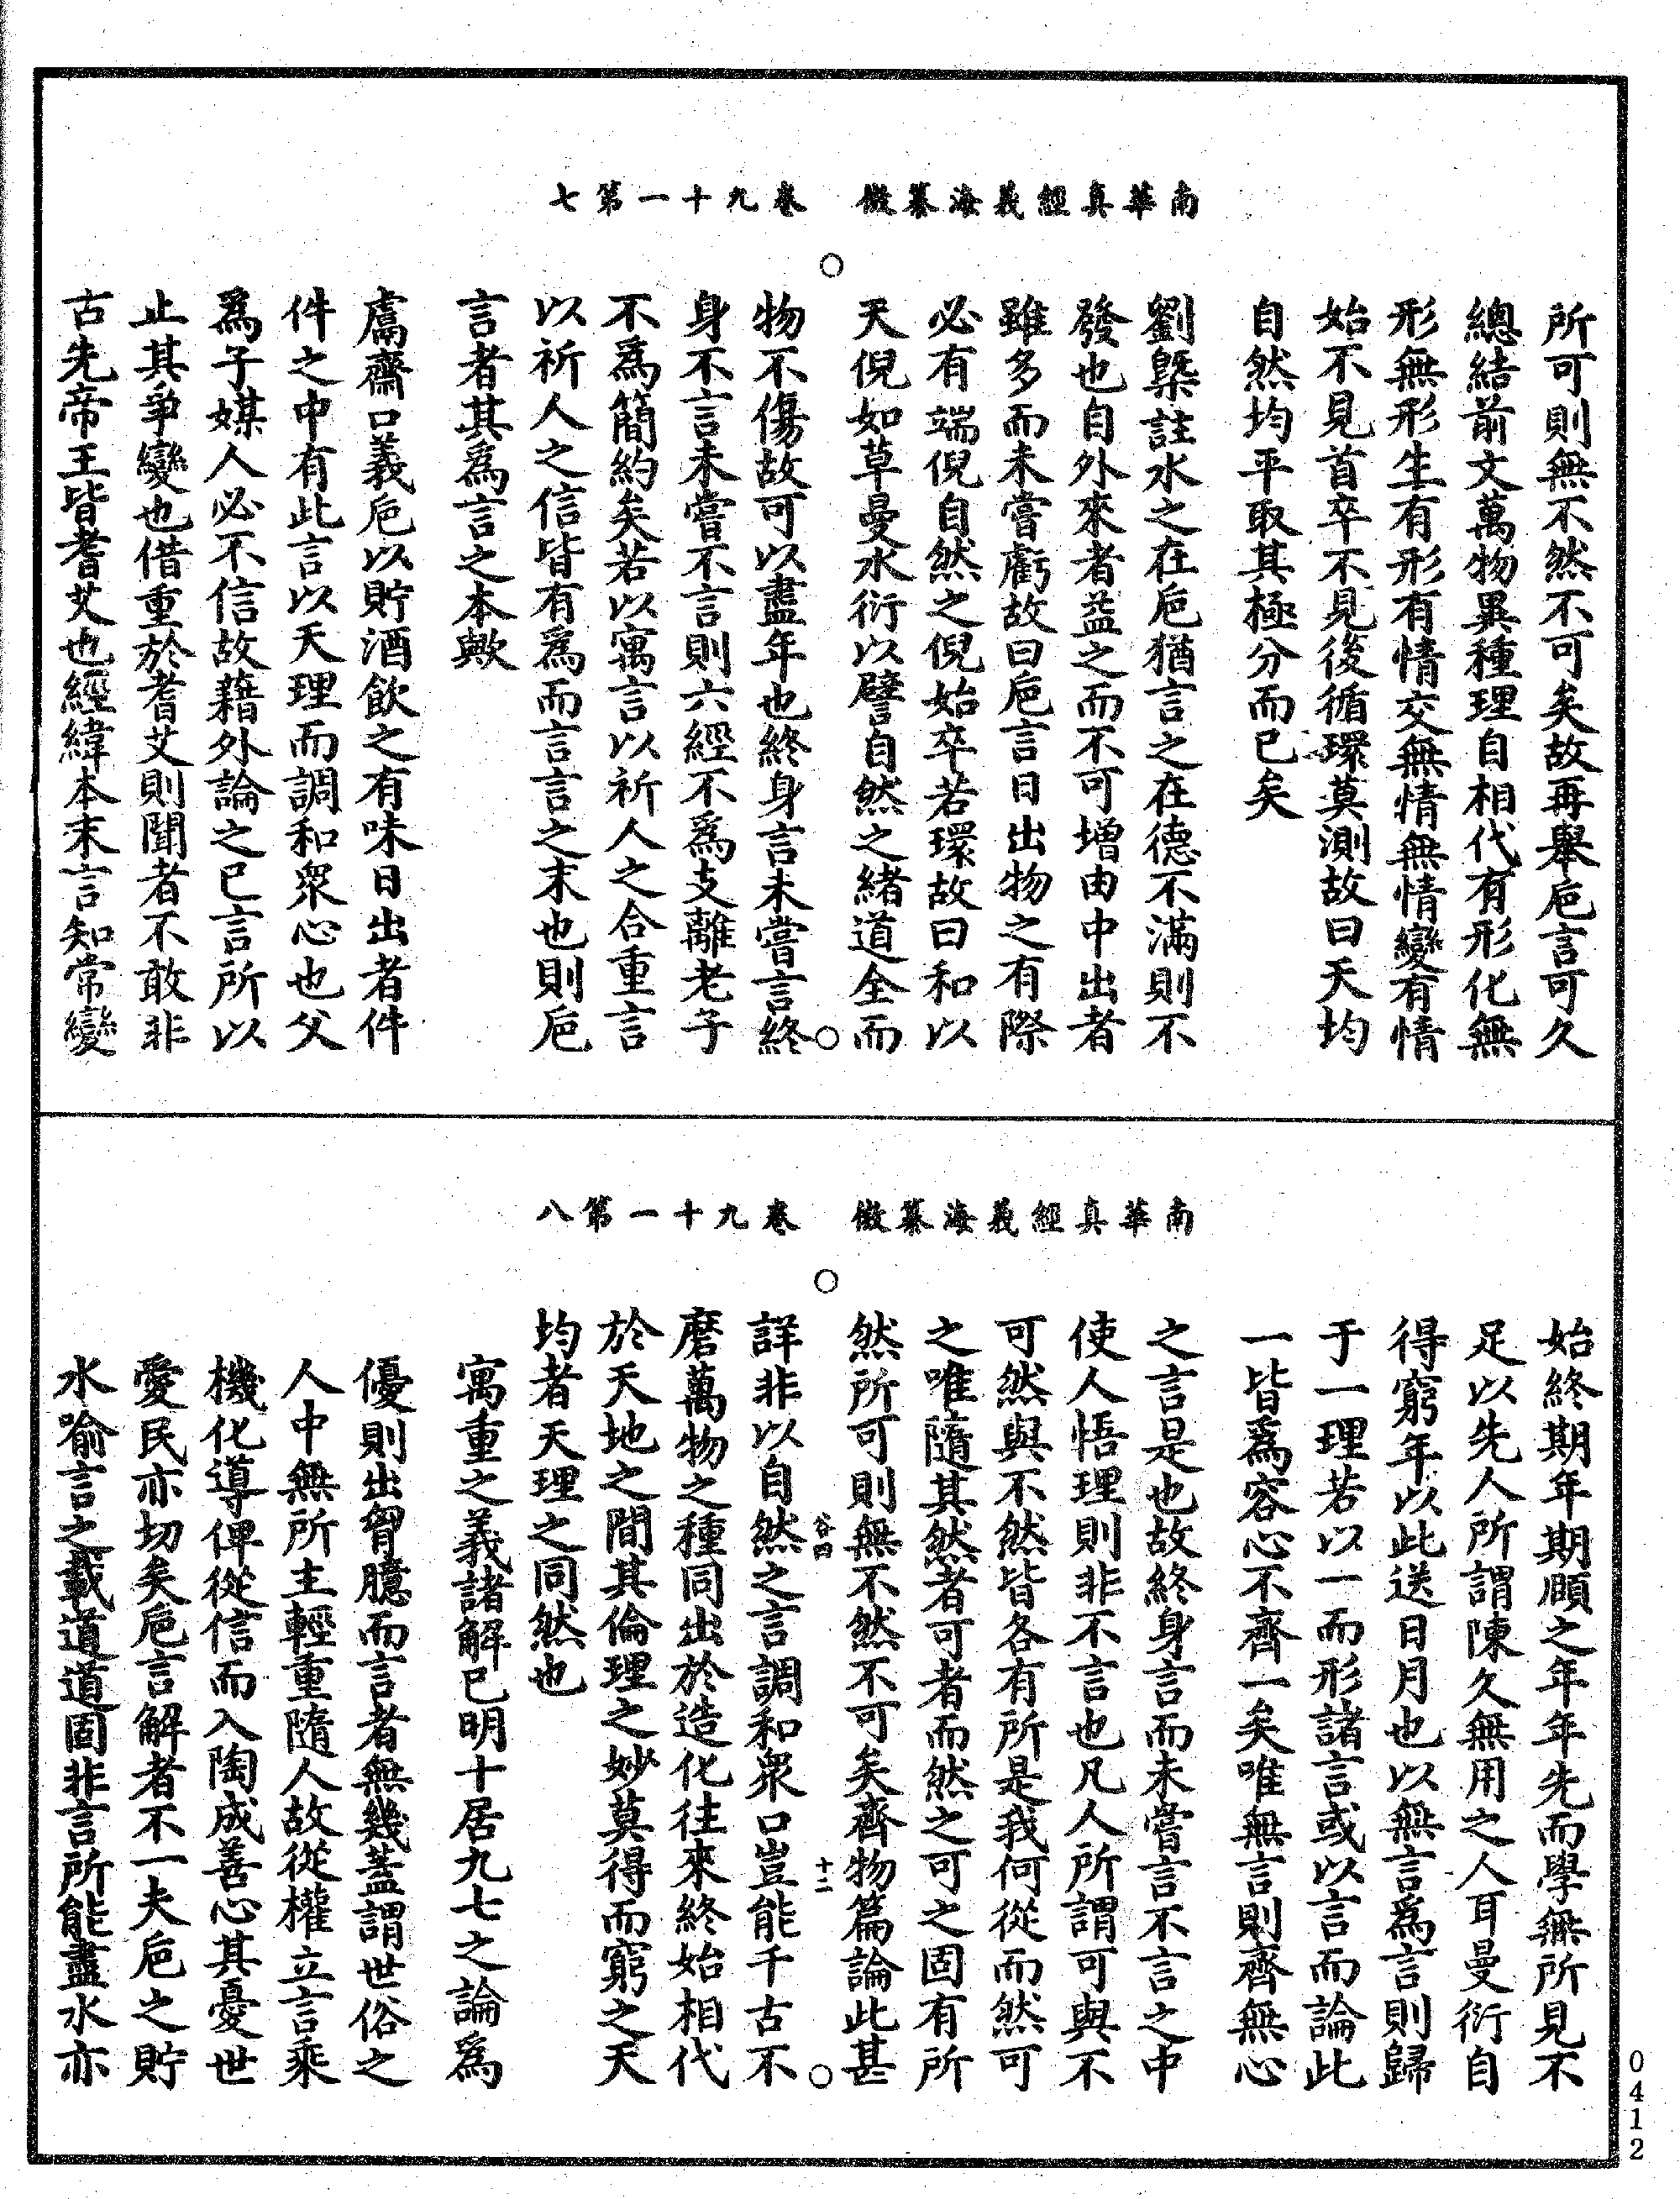 南華真經義海纂微　卷九十一第七
所可則無不然不可矣故再舉巵言可久
總結前文萬物異種理自相代有形化無
形無形生有形有情交無情無情變有情
始不見首卒不見後循環莫測故曰天均
自然均平取其極分而已矣
劉槩註水之在巵猶言之在德不滿則不
發也自外來者益之而不可增由中出者
雖多而未嘗虧故曰巵言日出物之有際
必有端倪自然之倪始卒若環故曰和以
天倪如草曼水衍以譬自然之緒道全而
物不傷故可以盡年也終身言未嘗言終
身不言未嘗不言則六經不爲支離老子
不爲簡約矣若以寓言以祈人之合重言
以祈人之信皆有爲而言言之末也則巵
言者其爲言之本歟
鬳齋口義巵以貯酒飲之有味日出者件
件之中有此言以天理而調和衆心也父
爲子媒人必不信故藉外論之已言所以
止其爭變也借重於耆艾則聞者不敢非
古先帝王皆耆艾也經緯本末言知常變
南華真經義海纂微　卷九十一第八
始終期年期頤之年年先而學無所見不
足以先人所謂陳久無用之人耳曼衍自
得窮年以此送日月也以無言爲言則歸
于一理若以一而形諸言或以言而論此
一皆爲容心不齊一矣唯無言則齊無心
之言是也故終身言而未嘗言不言之中
使人悟理則非不言也凡人所謂可與不
可然與不然皆各有所是我何從而然可
之唯隨其然者可者而然之可之固有所
然所可則無不然不可矣齊物篇論此甚
谷四　十二
詳非以自然之言調和衆口豈能千古不
磨萬物之種同出於造化往來終始相代
於天地之間其倫理之妙莫得而窮之天
均者天理之同然也
寓重之義諸解已明十居九七之論爲
優則出胷臆而言者無幾蓋謂世俗之
人中無所主輕重隨人故從權立言乘
機化導俾從信而入陶成善心其憂世
愛民亦切矣巵言解者不一夫巵之貯
水喻言之載道道固非言所能盡水亦
0412